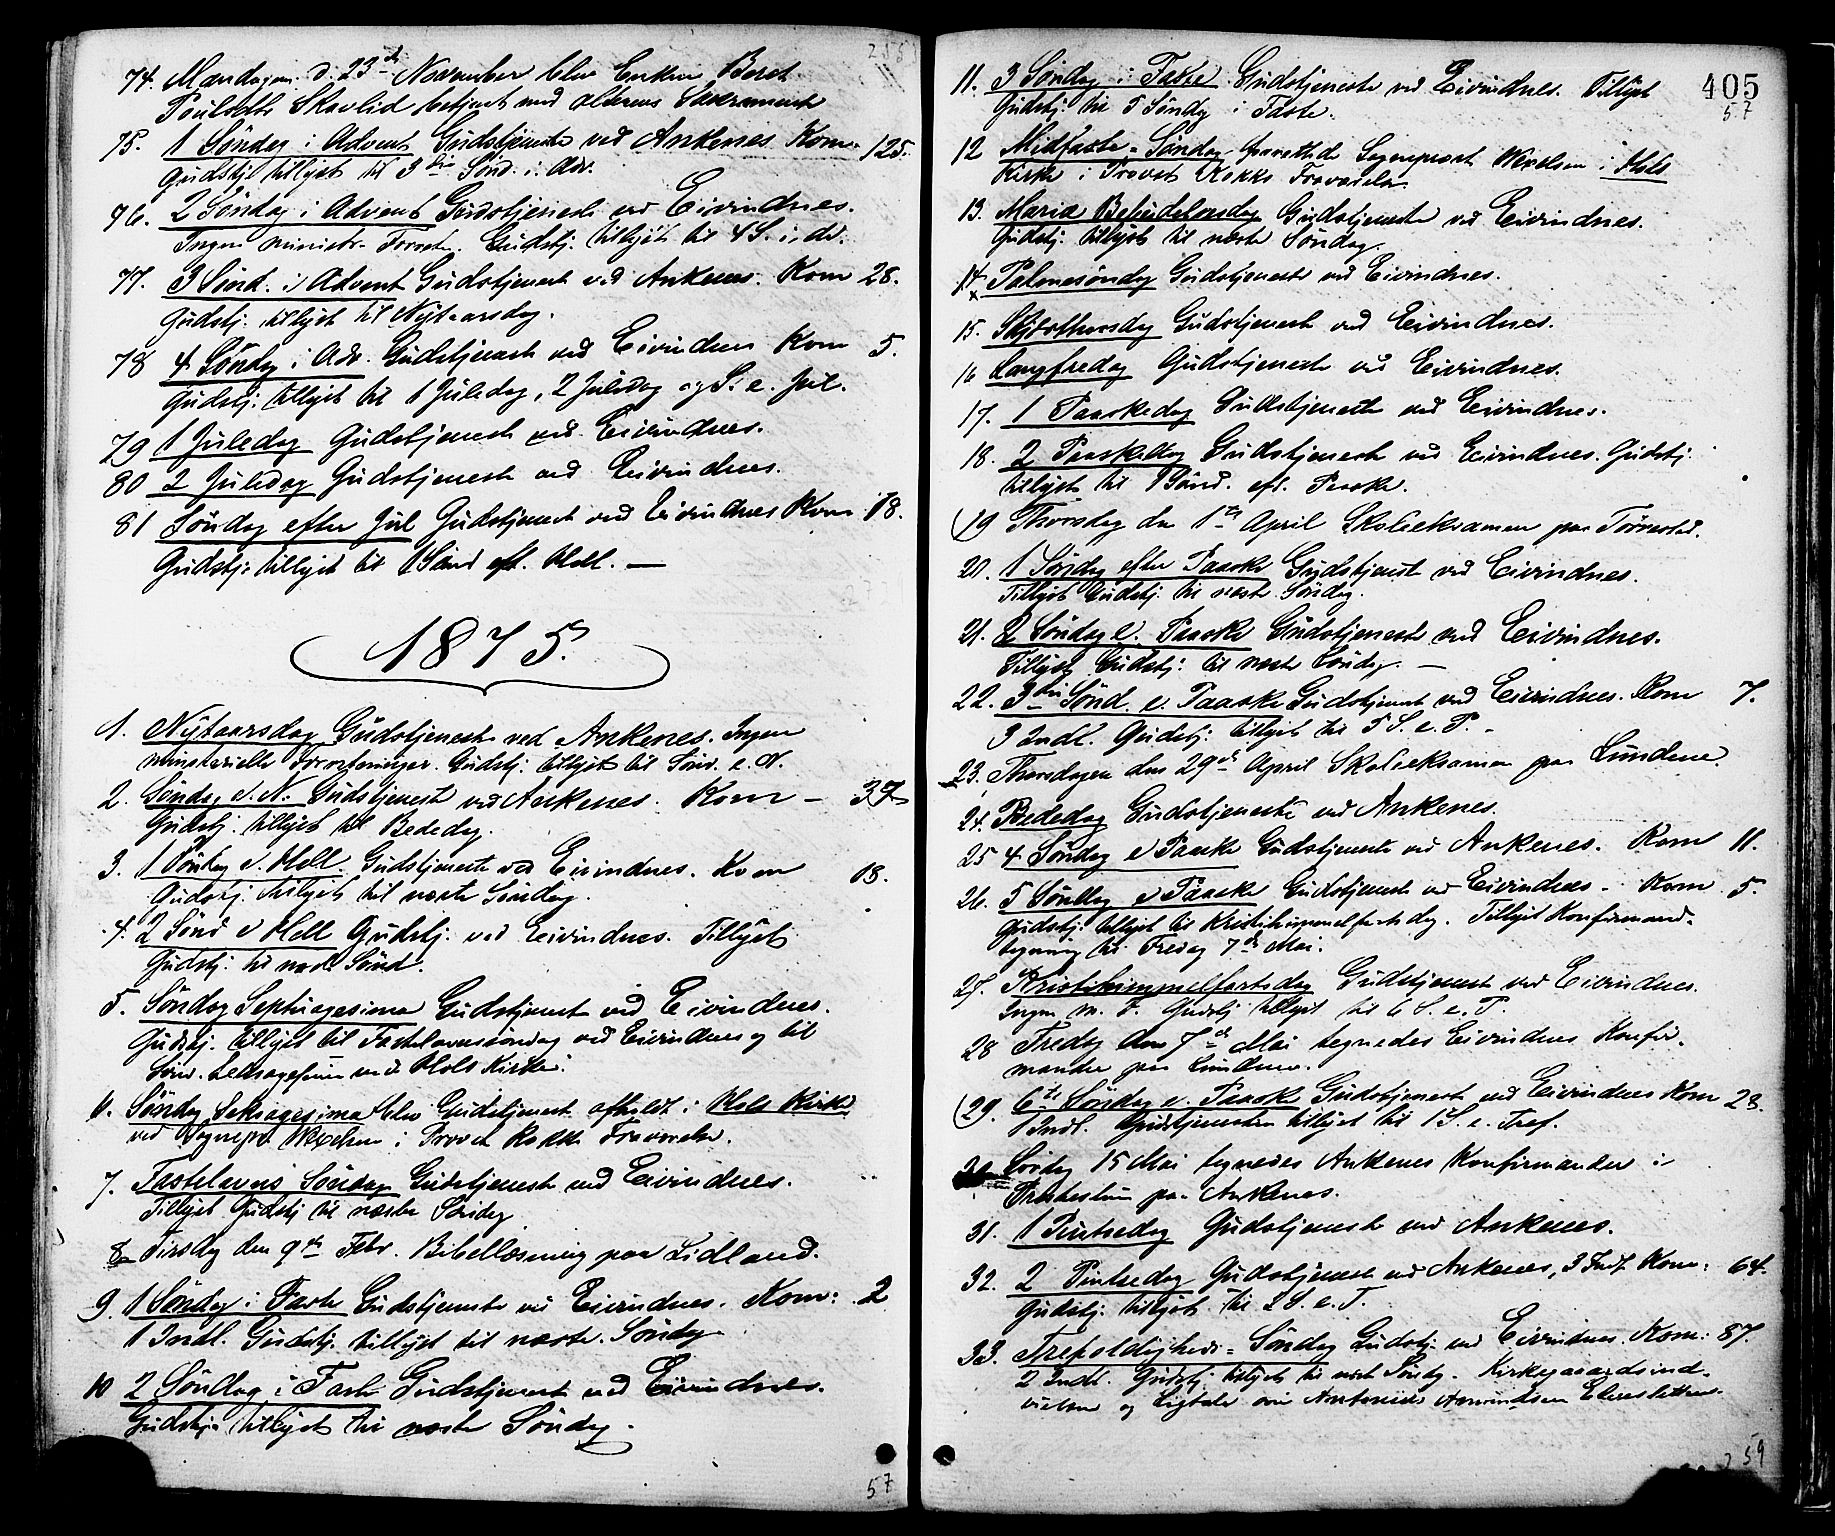 74. Mandagen d. 23de November blev Enken Beret
Poulsdtr Skavlid betjent med alterens Sacramente
75. 1 Söndag i Advent Gudstjeneste ved Ankenes Kom. 125.
Gudstj. tillyst til 3die Sönd. i Adv.
76. 2 Söndag i Advent Gudstjeneste ved Eivindnes.
Ingen ministr. Forretn. Gudstj. tillyst til 4 S. i Ad.
77. 3 Sönd. i Advent Gudstjeneste ved Ankenes. Kom 28.
Gudstj. tillyst til Nytaarsdag.
78 4 Söndag i Adv. Gudstjeneste ved Eivindnes Kom 5.
Gudstj. tillyst til 1 Juledag, 2 Juledag og S. e. Jul.
79 1 Juledag Gudstjeneste ved Eivindnes.
80 2 Juledag Gudstjeneste ved Eivindnes.
81 Söndag efter Jul Gudstjeneste ved Eivindnes Kom 18.
Gudstj. tillyst til 1 Sönd eft. Hell. —
1875.
1. Nytaarsdag Gudstjeneste ved Ankenes. Ingen
ministerielle Forretninger. Gudstj. tillyst til Sönd. e. N.
2. Söndag e. N. Gudstjeneste ved Ankenes. Kom – 37
Gudstj. tillyst til Bededag.
3. 1 Söndag e. Hell. Gudstjeneste ved Eivindnes. Kom 18.
Gudstj. tillyst til næste Söndag.
4. 2 Sönd e Hell Gudstj. ved Eivindnes. Tillyst
Gudstj. til næste Sönd.
5. Söndag Septuagesima Gudstjeneste ved Eivindnes.
Gudstj. tillyst til Fastelavnssöndag ved Eivindnes og til
Sönd. Seksagesima ved Hols Kirke.
6. Söndag Seksagesima blev Gudstjeneste afholdt i Hols Kirke
ved Sognepr. Wexelsen i Provst Kokks Fraværelse.
7. Fastelavns Söndag Gudstjeneste ved Eivindnes.
Tillyst Gudstj til næste Söndag
8 Tirsdag den 9de Febr. Bibellæsning paa Lidland.
9. 1 Söndag i Faste Gudstjeneste ved Eivindnes. Kom: 2
1 Indl. Gudstj. tillyst til næste Söndag
10 2 Söndag i Faste Gudstjeneste ved Eivindnes.
Gudstj. tillyst til næste Söndag.
57
405
57
11. 3 Söndag i Faste Gudstjeneste ved Eivindnes. Tillyst
Gudstj. til 5 Söndag i Faste.
12 Midfaste-Söndag forrettede Sogneprest Wexelsen i Hols
Kirke i Provst Kokks Fraværelse
13. Mariæ Bebudelsesdag Gudstjeneste ved Eivindnes.
Gudstj. tillyst til næste Söndag.
14 Palmesöndag Gudstjeneste ved Eivindnes.
15. Skjærthorsdag Gudstjeneste ved Eivindnes.
16 Langfredag Gudstjeneste ved Eivindnes.
17. 1 Paaskedag Gudstjeneste ved Eivindnes.
18. 2 Paaskedag Gudstjeneste ved Eivindnes. Gudstj.
tillyst til 1 Sönd. eft. Paaske.
19 Thorsdag den 1ste April Skoleeksamen paa
20. 1 Söndag efter Paaske Gudstjeneste ved Eivindnes.
Tillyst Gudstj. til næste Söndag.
21. 2 Söndag e. Paaske Gudstjeneste ved Eivindnes.
Tillyst Gudstj: til næste Söndag. —
22. 3die Sönd. e. Paaske Gudstjeneste ved Eivindnes. Kom 7.
3 Indl. Gudstj. tillyst til 5 S. e. P. –
23. Thorsdagen den 29de April Skoleeksamen paa Lundene.
24. Bededag Gudstjeneste ved Ankenes.
25 4 Söndag e Paaske Gudstjeneste ved Ankenes. Kom 11.
26. 5 Söndag e Paaske Gudstjeneste ved Eivindnes. Kom 5.
Gudstj. tillyst til Kristihimmelfartsdag. Tillyst Konfirmand-
tegning til Fredag 7de Mai.
27. Kristihimmelfartsdag Gudstjeneste ved Eivindnes.
Ingen m. F. Gudstj tillyst til 6 S. e. P.
28 Fredag den 7de Mai tegnedes Eivindnes Konfir-
mander paa Lundene.
29. 6te Söndag e. Paaske Gudstjeneste ved Eivindnes Kom 23.
1 Indl. Gudstjenesten tillyst til 1 S. e. Tref.
30 Lördag 15 Mai tegnedes Ankenes Konfirmander i
Prestestuen paa Ankenes.
31. 1 Pintsedag Gudstjeneste ved Ankenes.
32. 2 Pintsedag Gudstjeneste ved Ankenes, 3 Indl. Kom: 64.
Gudstj. tillyst til 2 S. e. T.
33. Trefoldigheds-Söndag Gudstj. ved Eivindnes Kom: 87.
2 Indl. Gudstj. tillyst til næste Söndag. Kirkegaardsind-
vielse og Ligtale over Amundsen
59